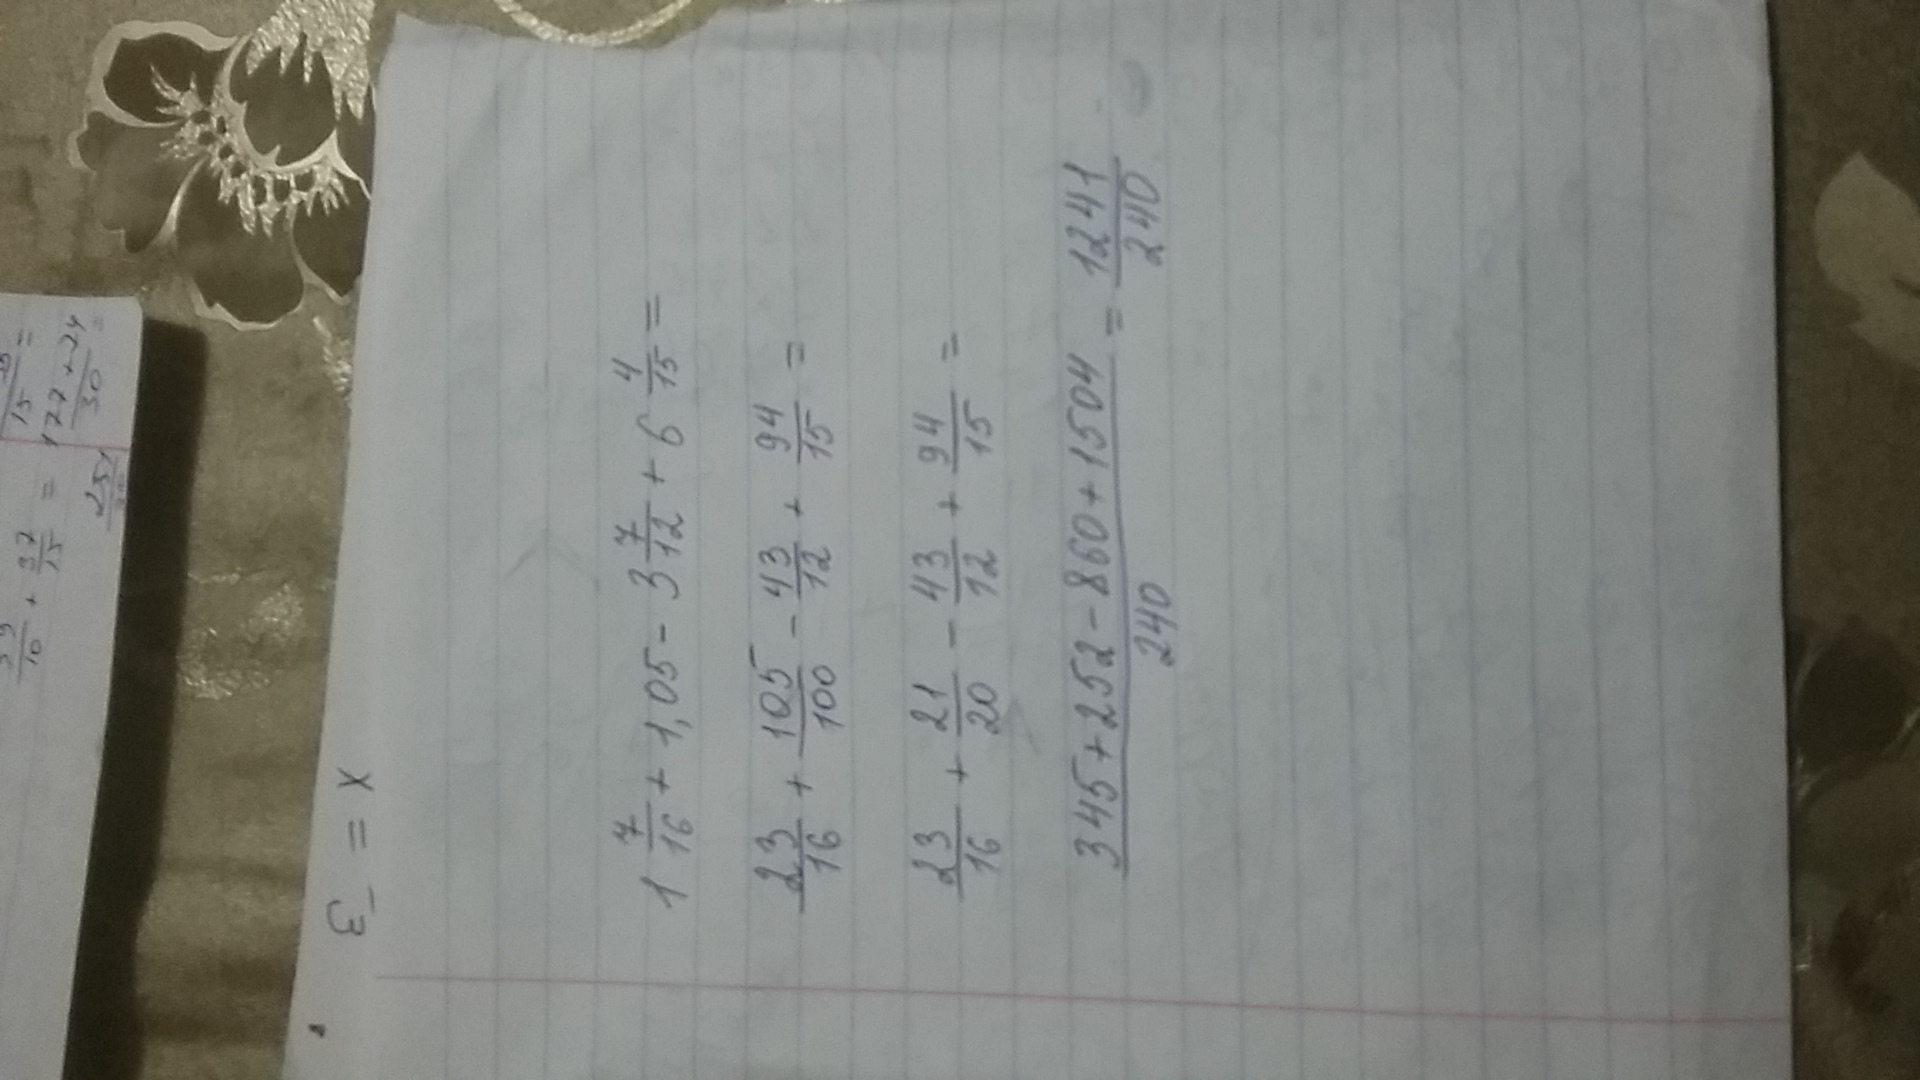 ε = x
1 7/16 + 1,05 - 3 7/12 + 6 4/15 =
23/16 + 105/100 - 43/12 + 94/15 =
23/16 + 21/20 - 43/12 + 94/15 =
345+252-860+1504/240 = 1241/240
15 =
10 + 37/15 = 177+24/30 =
251